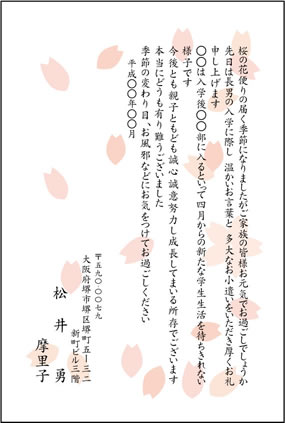 桜の花便りの届く季節になりましたがご家族の皆様お元気でお過ごしでしょうか
先日は長男の入学に際し 温かいお言葉と 多大なお小遣いをいただき厚くお礼
申し上げます
〇〇は入学後〇〇部に入るといって四月からの新たな学生生活を待ちきれない
様子です
今後とも親子ともども誠心誠意努力し成長してまいる所存でございます
本当にどうも有り難うございました
季節の変わり目、お風邪などにお気をつけてお過ごしください
平成〇〇年〇〇月
〒五九〇〇〇七九
大阪府堺市堺区堺町五ー三二
新町ビル三階
松井 勇
摩里子